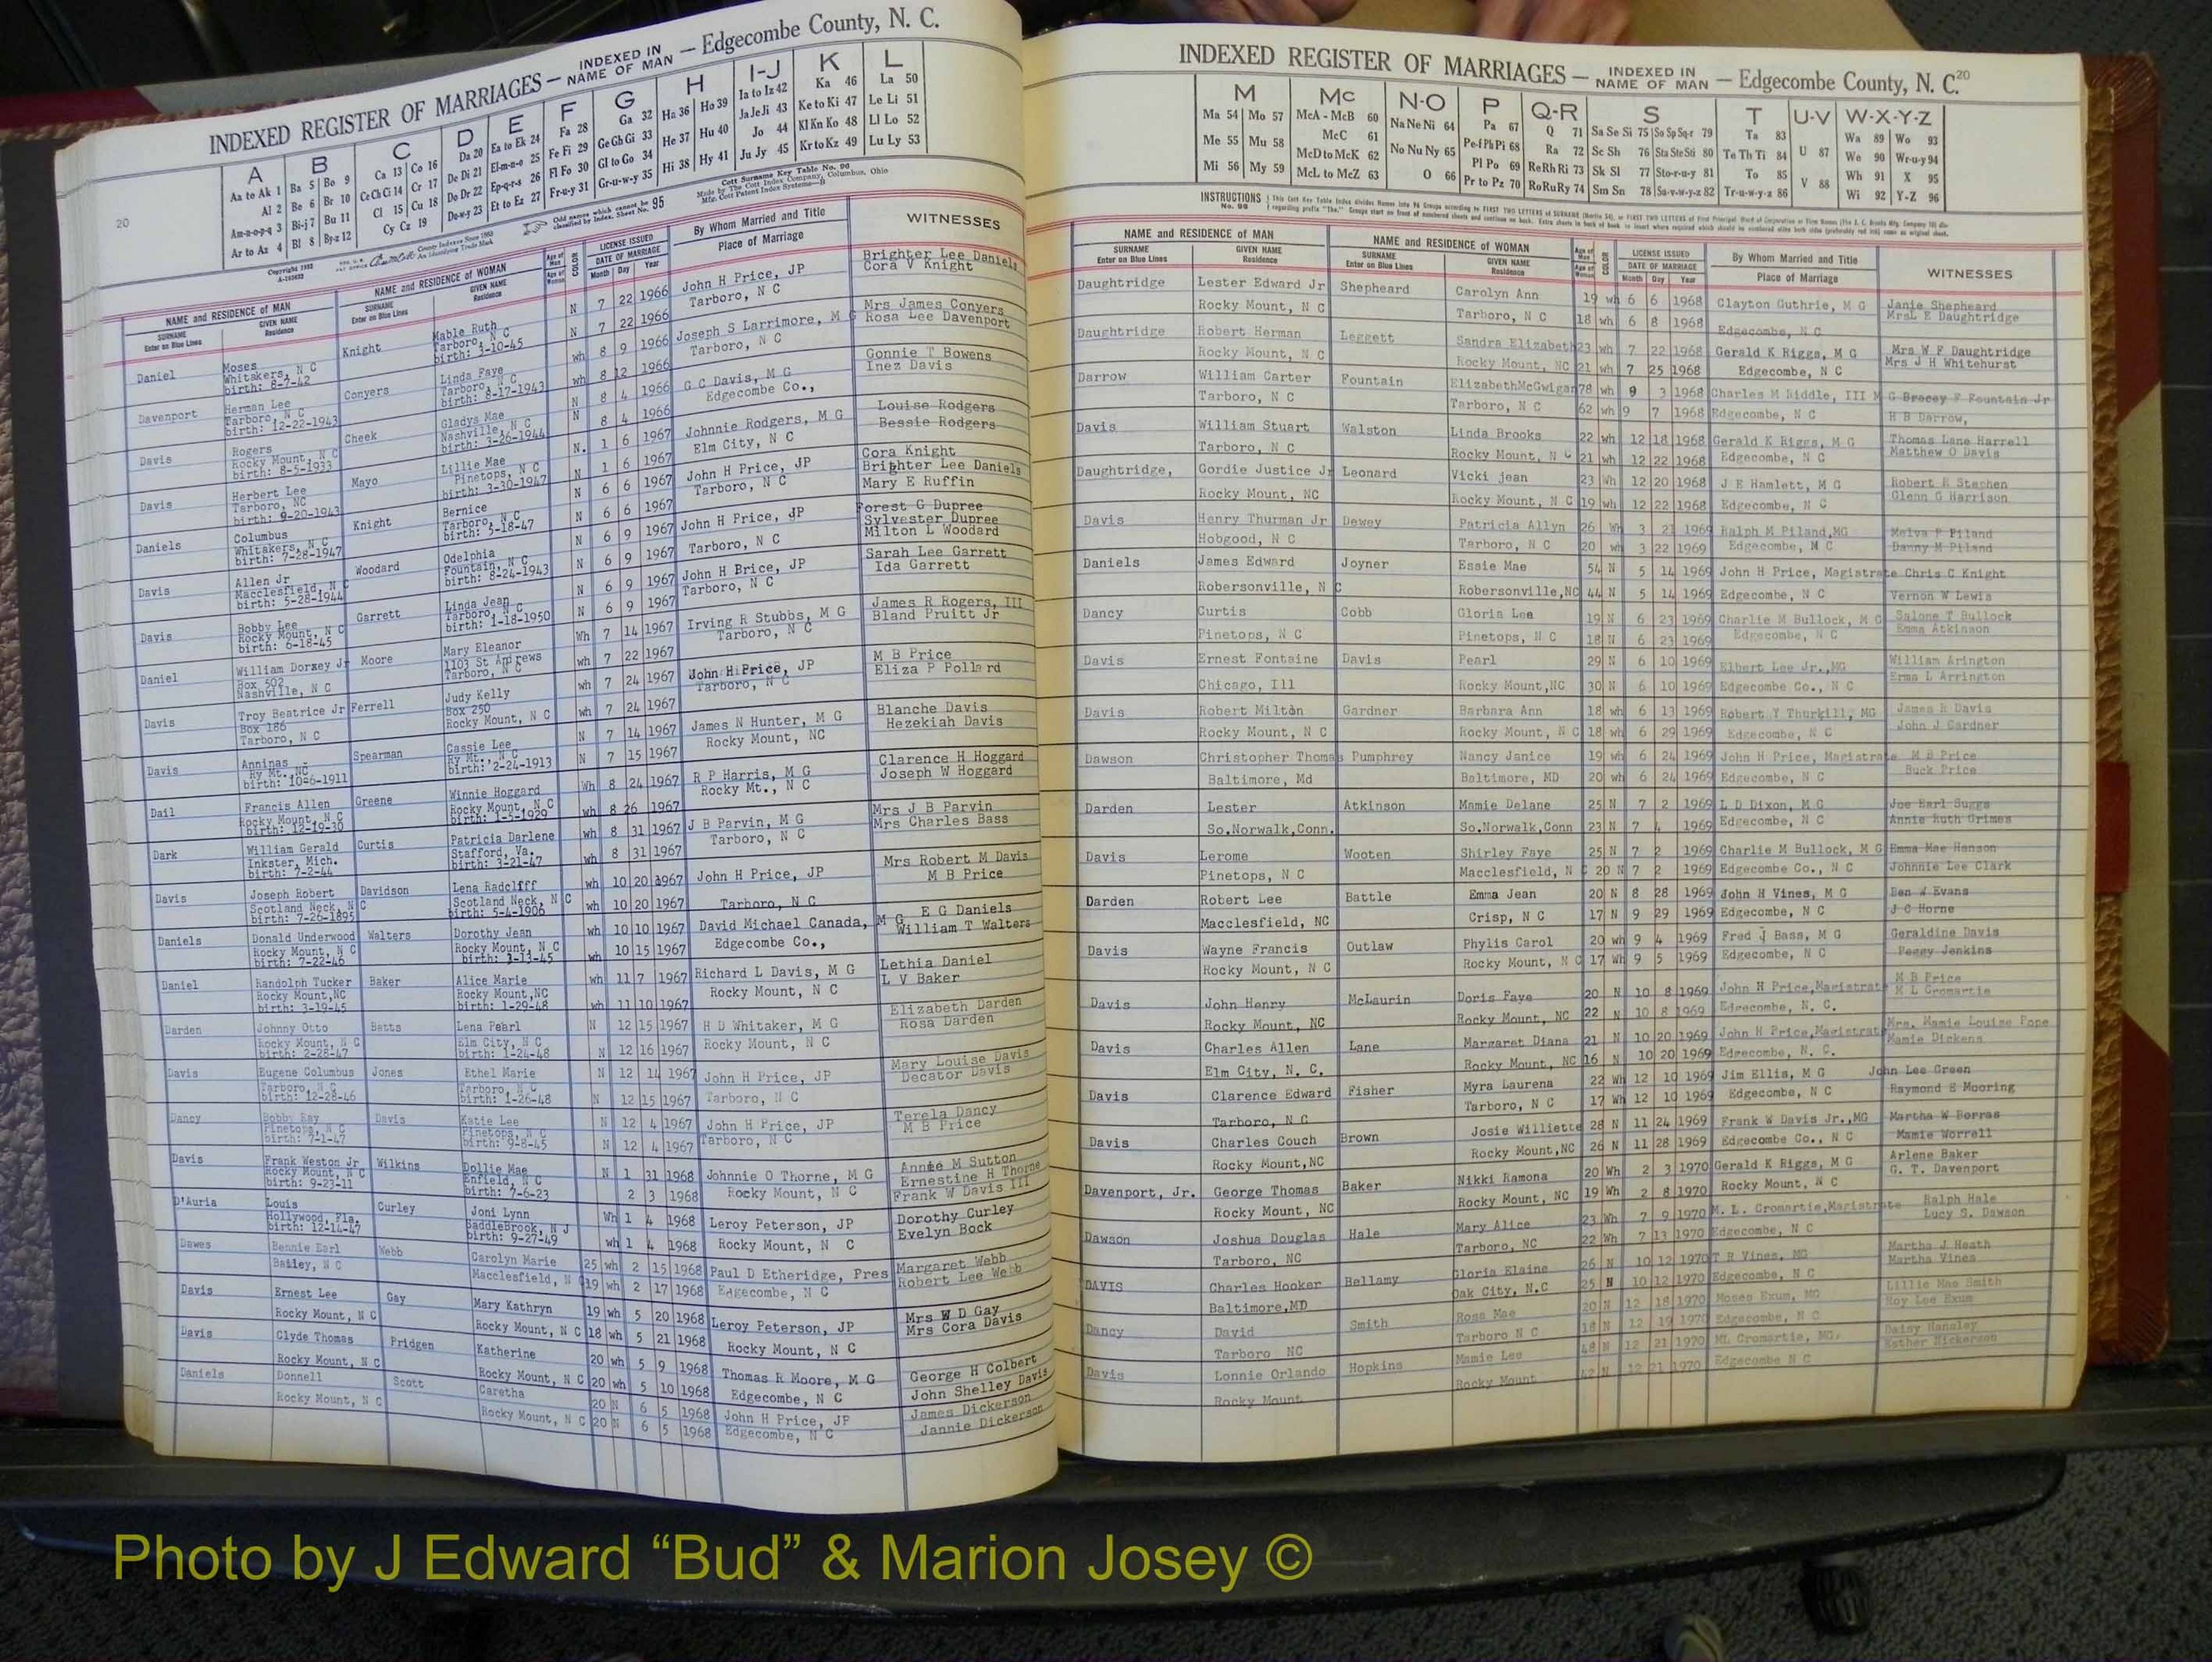 INDEXED REGISTER OF MARRIAGES — INDEXED IN NAME OF MAN — Edgecombe County, N. C.
A B C D E F G H I-J K L
Aa to Ak 1 Ba 5 Bo 9 Ca 13 Co 16 Da 20 Ea to Ek 24 Fa 28 Ga 32 Ha 36 Ho 39 Ia to Iz 42 Ka 46 La 50
Al 2 Be 6 Br 10 Ce Ch Ci 14 Cr 17 De Di 21 El-m-n-o 25 Fe Fi 29 Ge Gh Gi 33 He 37 Hu 40 Ja Je Ji 43 Ke to Ki 47 Le Li 51
Am-n-o-p-q 3 Bi-j 7 Bu 11 Cl 15 Cu 18 Do Dr 22 Ep-q-r-s 26 Fl Fo 30 Gl to Go 34 Hi 38 Hy 41 Jo 44 Kl Kn Ko 48 Ll Lo 52
Ar to Az 4 Bl 8 By-z 12 Cy Cz 19 Dow-y 23 Et to Ez 27 Fr-u-y 31 Gr-u-w-y 35 Ju Jy 45 Kr to Kz 49 Lu Ly 53
20
Odd names which cannot be classified by Index. Sheet No. 95
Cott Surname Key Table No. 96
Made by The Cott Index Company, Columbus, Ohio
Mfg. Cott Patent Index Systems—B
NAME and RESIDENCE OF MAN
SURNAME Enter on Blue Lines
GIVEN NAME Residence
NAME and RESIDENCE OF WOMAN
SURNAME Enter on Blue Lines
GIVEN NAME Residence
Age of Man
Age of Woman
COLOR
LICENSE ISSUED
DATE OF MARRIAGE
Month Day Year
By Whom Married and Title
Place of Marriage
WITNESSES
Daniel Moses Knight Mable Ruth N 7 22 1966 John H Price, JP Brighter Lee Daniels
Whitakers, N C Tarboro, N C N 7 22 1966 Tarboro, N C Cora V Knight
birth: 8-7-42 birth: 3-10-45
Davenport Herman Lee Conyers Linda Faye wh 8 9 1966 Joseph S Larrimore, M G Mrs James Conyers
Tarboro, N C Tarboro, N C wh 8 12 1966 Tarboro, N C Rosa Lee Davenport
birth: 12-22-1943 birth: 8-17-1943
Davis Rogers Cheek Gladys Mae N 8 4 1966 G C Davis, M G Gonnie T Bowens
Rocky Mount, N C Nashville, N C N 8 4 1966 Edgecombe Co., Inez Davis
birth: 8-5-1933 birth: 3-26-1944
Davis Herbert Lee Mayo Lillie Mae N. 1 6 1967 Johnnie Rodgers, M G Louise Rodgers
Tarboro, NC Pinetops, N C N 1 6 1967 Elm City, N C Bessie Rodgers
birth: 9-20-1943 birth: 3-30-1947
Daniels Columbus Knight Bernice N 6 6 1967 John H Price, JP Cora Knight
Whitakers, N C Tarboro, N C N 6 6 1967 Tarboro, N C Brighter Lee Daniels
birth: 7-28-1947 birth: 5-18-47 Mary E Ruffin
Davis Allen Jr Woodard Odelphia N 6 9 1967 John H Price, JP Forest G Dupree
Macclesfield, N C Fountain, N C N 6 9 1967 Tarboro, N C Sylvester Dupree
birth: 5-28-1944 birth: 8-24-1943 Milton L Woodard
Davis Bobby Lee Garrett Linda Jean N 6 9 1967 John H Brice, JP Sarah Lee Garrett
Rocky Mount, N C Tarboro, N C N 6 9 1967 Tarboro, N C Ida Garrett
birth: 6-18-45 birth: 1-18-1950
Daniel William Dorsey Jr Moore Mary Eleanor Wh 7 14 1967 Irving R Stubbs, M G James R Rogers, III
Box 502 1103 St Andrews wh 7 22 1967 Tarboro, N C Bland Pruitt Jr
Nashville, N C Tarboro, N C
Davis Troy Beatrice Jr Ferrell Judy Kelly wh 7 24 1967 John H Price, JP M B Price
Box 186 Box 250 wh 7 24 1967 Tarboro, N C Eliza P Pollard
Tarboro, N C Rocky Mount, N C
Davis Anninas Spearman Cassie Lee N 7 14 1967 James N Hunter, M G Blanche Davis
Ry Mt. NC Ry Mt., N C N 7 15 1967 Rocky Mount, NC Hezekiah Davis
birth: 10-6-1911 birth: 2-24-1913
Dail Francis Allen Greene Winnie Hoggard Wh 8 24 1967 R P Harris, M G Clarence H Hoggard
Rocky Mount, N C Rocky Mount, N C wh 8 26 1967 Rocky Mt., N C Joseph W Hoggard
birth: 12-19-30 birth: 1-5-1929
Dark William Gerald Curtis Patricia Darlene wh 8 31 1967 J B Parvin, M G Mrs J B Parvin
Inkster, Mich. Stafford, Va. wh 8 31 1967 Tarboro, N C Mrs Charles Bass
birth: 7-2-44 birth: 3-21-47
Davis Joseph Robert Davidson Lena Radcliff wh 10 20 1967 John H Price, JP Mrs Robert M Davis
Scotland Neck, N C Scotland Neck, N C wh 10 20 1967 Tarboro, N C M B Price
birth: 7-26-1895 birth: 5-4-1906
Daniels Donald Underwood Walters Dorothy Jean wh 10 10 1967 David Michael Canada, M G E G Daniels
Rocky Mount, N C Rocky Mount, N C wh 10 15 1967 Edgecombe Co., William T Walters
birth: 7-22-46 birth: 3-13-45
Daniel Randolph Tucker Baker Alice Marie wh 11 7 1967 Richard L Davis, M G Lethia Daniel
Rocky Mount,NC Rocky Mount,NC wh 11 10 1967 Rocky Mount, N C L V Baker
birth: 3-19-45 birth: 1-29-48
Darden Johnny Otto Batts Lena Pearl N 12 15 1967 H D Whitaker, M G Elizabeth Darden
Rocky Mount, N C Elm City, N C N 12 16 1967 Rocky Mount, N C Rosa Darden
birth: 2-28-47 birth: 1-24-48
Davis Eugene Columbus Jones Ethel Marie N 12 14 1967 John H Price, JP Mary Louise Davis
Tarboro, N C Tarboro, N C N 12 15 1967 Tarboro, N C Decator Davis
birth: 12-28-46 birth: 1-26-48
Dancy Bobby Ray Davis Katie Lee N 12 4 1967 John H Price, JP Terela Dancy
Pinetops, N C Pinetops, N C N 12 4 1967 Tarboro, N C M B Price
birth: 7-1-47 birth: 9-8-45
Davis Frank Weston Jr Wilkins Dollie Mae N 1 31 1968 Johnnie O Thorne, M G Annie M Sutton
Rocky Mount, N C Enfield, N C 2 3 1968 Rocky Mount, N C Ernestine H Thorne
birth: 9-23-11 birth: 7-6-23 Frank W Davis III
D'Auria Louis Curley Joni Lynn Wh 1 4 1968 Leroy Peterson, JP Dorothy Curley
Hollywood, Fla. SaddleBrook, N J wh 1 4 1968 Rocky Mount, N C Evelyn Bock
birth: 12-14-47 birth: 9-27-49
Dawes Bennie Earl Webb Carolyn Marie 25 wh 2 15 1968 Paul D Etheridge, Pres Margaret Webb
Bailey, N C Macclesfield, N C 19 wh 2 17 1968 Edgecombe, N C Robert Lee Webb
Davis Ernest Lee Gay Mary Kathryn 19 wh 5 20 1968 Leroy Peterson, JP Mrs W D Gay
Rocky Mount, N C Rocky Mount, N C 18 wh 5 21 1968 Rocky Mount, N C Mrs Cora Davis
Davis Clyde Thomas Pridgen Katherine 20 wh 5 9 1968 Thomas R Moore, M G George H Colbert
Rocky Mount, N C Rocky Mount, N C 20 wh 5 10 1968 Edgecombe, N C John Shelley Davis
Daniels Donnell Scott Caretha 20 N 6 5 1968 John H Price, JP James Dickerson
Rocky Mount, N C Rocky Mount, N C 20 N 6 5 1968 Edgecombe, N C Jannie Dickerson
INDEXED REGISTER OF MARRIAGES — INDEXED IN NAME OF MAN — Edgecombe County, N. C. 20
M Mc N-O P Q-R S T U-V W-X-Y-Z
Ma 54 Mo 57 McA - McB 60 Na Ne Ni 64 Pa 67 Q 71 Sa Se Si 75 So Sp Sq-r 79 Ta 83 U 87 Wa 89 Wo 93
Me 55 Mu 58 McC 61 No Nu Ny 65 Pe-f Ph Pi 68 Ra 72 Sc Sh 76 Sta Ste Sti 80 Te Th Ti 84 V 88 We 90 Wr-u-y 94
Mi 56 My 59 McD to McK 62 O 66 Pl Po 69 Re Rh Ri 73 Sk Sl 77 Sto-r-u-y 81 To 85 Wh 91 X 95
McL to McZ 63 Pr to Pz 70 Ro Ru Ry 74 Sm Sn 78 Su-v-w-y-z 82 Tr-u-w-y-z 86 Wi 92 Y-Z 96
INSTRUCTIONS
NAME AND RESIDENCE OF MAN
SURNAME Enter on Blue Lines
GIVEN NAME Residence
NAME and RESIDENCE OF WOMAN
SURNAME Enter on Blue Lines
GIVEN NAME Residence
Age of Man
Age of Woman
COLOR
LICENSE ISSUED
DATE OF MARRIAGE
Month Day Year
By Whom Married and Title
Place of Marriage
WITNESSES
Daughtridge Lester Edward Jr Shepheard Carolyn Ann 19 wh 6 6 1968 Clayton Guthrie, M G Janie Shepheard
Rocky Mount, N C Tarboro, N C 18 wh 6 8 1968 Edgecombe, N C MrsL E Daughtridge
Daughtridge Robert Herman Leggett Sandra Elizabeth 23 wh 7 22 1968 Gerald K Riggs, M G Mrs W F Daughtridge
Rocky Mount, N C Rocky Mount, NC 21 wh 7 25 1968 Edgecombe, N C Mrs J H Whitehurst
Darrow William Carter Fountain ElizabethMcGwigan 78 wh 9 3 1968 Charles M Riddle, III M G Bracey F Fountain Jr
Tarboro, N C Tarboro, N C 62 wh 9 7 1968 Edgecombe, N C H B Darrow,
Davis William Stuart Walston Linda Brooks 22 wh 12 18 1968 Gerald K Riggs, M G Thomas Lane Harrell
Tarboro, N C Rocky Mount, N C 21 wh 12 22 1968 Edgecombe, N C Matthew O Davis
Daughtridge, Gordie Justice Jr Leonard Vicki jean 23 Wh 12 20 1968 J E Hamlett, M G Robert R Stephen
Rocky Mount, NC Rocky Mount, N C 19 wh 12 22 1968 Edgecombe, N C Glenn G Harrison
Davis Henry Thurman Jr Dewey Patricia Allyn 26 Wh 3 21 1969 Ralph M Piland,MG Melva P Piland
Hobgood, N C Tarboro, N C 20 wh 3 22 1969 Edgecombe, N C Danny M Piland
Daniels James Edward Joyner Essie Mae 54 N 5 14 1969 John H Price, Magistrate Chris C Knight
Robersonville, N C Robersonville,NC 44 N 5 14 1969 Edgecombe, N C Vernon W Lewis
Dancy Curtis Cobb Gloria Lea 19 N 6 23 1969 Charlie M Bullock, M G Salone T Bullock
Pinetops, N C Pinetops, N C 18 N 6 23 1969 Edgecombe, N C Emma Atkinson
Davis Ernest Fontaine Davis Pearl 29 N 6 10 1969 Elbert Lee Jr.,MG William Arington
Chicago, Ill Rocky Mount,NC 30 N 6 10 1969 Edgecombe Co., N C Erma L Arrington
Davis Robert Milton Gardner Barbara Ann 18 wh 6 13 1969 Robert Y Thurkill, MG James R Davis
Rocky Mount, N C Rocky Mount, N C 18 wh 6 29 1969 Edgecombe, N C John J Gardner
Dawson Christopher Thomas Pumphrey Nancy Janice 19 wh 6 24 1969 John H Price, Magistrate M B Price
Baltimore, Md Baltimore, MD 20 wh 6 24 1969 Edgecombe, N C Buck Price
Darden Lester Atkinson Mamie Delane 25 N 7 2 1969 L D Dixon, M G Joe Earl Suggs
So.Norwalk,Conn. So.Norwalk,Conn 23 N 7 4 1969 Edgecombe, N C Annie Ruth Grimes
Davis Lerome Wooten Shirley Faye 25 N 7 2 1969 Charlie M Bullock, M G Emma Mae Hanson
Pinetops, N C Macclesfield, N C 20 N 7 2 1969 Edgecombe Co., N C Johnnie Lee Clark
Darden Robert Lee Battle Emma Jean 20 N 8 28 1969 John H Vines, M G Ben W Evans
Macclesfield, NC Crisp, N C 17 N 9 29 1969 Edgecombe, N C J C Horne
Davis Wayne Francis Outlaw Phylis Carol 20 wh 9 4 1969 Fred J Bass, M G Geraldine Davis
Rocky Mount, N C Rocky Mount, N C 17 Wh 9 5 1969 Edgecombe, N C Peggy Jenkins
Davis John Henry McLaurin Doris Faye 20 N 10 8 1969 John H Price,Magistrate M B Price
Rocky Mount, NC Rocky Mount, NC 22 N 10 8 1969 Edgecombe, N. C. M L Cromartie
Davis Charles Allen Lane Margaret Diana 21 N 10 20 1969 John H Price,Magistrate Mrs. Mamie Louise Pope
Elm City, N. C. Rocky Mount, NC 16 N 10 20 1969 Edgecombe, N. C. Mamie Dickens
Davis Clarence Edward Fisher Myra Laurena 22 Wh 12 10 1969 Jim Ellis, M G John Lee Green
Tarboro, N C Tarboro, N C 17 Wh 12 10 1969 Edgecombe, N C Raymond E Mooring
Davis Charles Couch Brown Josie Williette 28 N 11 24 1969 Frank W Davis Jr.,MG Martha W Borras
Rocky Mount,NC Rocky Mount,NC 26 N 11 28 1969 Edgecombe Co., N C Mamie Worrell
Davenport, Jr. George Thomas Baker Nikki Ramona 20 Wh 2 3 1970 Gerald K Riggs, M G Arlene Baker
Rocky Mount, NC Rocky Mount, NC 19 Wh 2 8 1970 Rocky Mount, N C G. T. Davenport
Dawson Joshua Douglas Hale Mary Alice 23 Wh 7 9 1970 M. L. Cromartie,Magistrate Ralph Hale
Tarboro, NC Tarboro, NC 22 Wh 7 13 1970 Edgecombe, N C Lucy S. Dawson
DAVIS Charles Hooker Bellamy Gloria Elaine 26 N 10 12 1970 T R Vines, MG Martha J Heath
Baltimore,MD Oak City, N.C 25 N 10 12 1970 Edgecombe, N C Martha Vines
Dancy David Smith Rosa Mae 20 N 12 18 1970 Moses Exum, MG Lillie Mae Smith
Tarboro NC Tarboro N C 18 N 12 19 1970 Edgecombe, N C Roy Lee Exum
Davis Lonnie Orlando Hopkins Mamie Lee 48 N 12 21 1970 ML Cromartie, MG. Daisy Hansley
Rocky Mount Rocky Mount 42 N 12 21 1970 Edgecombe N C Esther Nickerson
Photo by J Edward “Bud” & Marion Josey ©